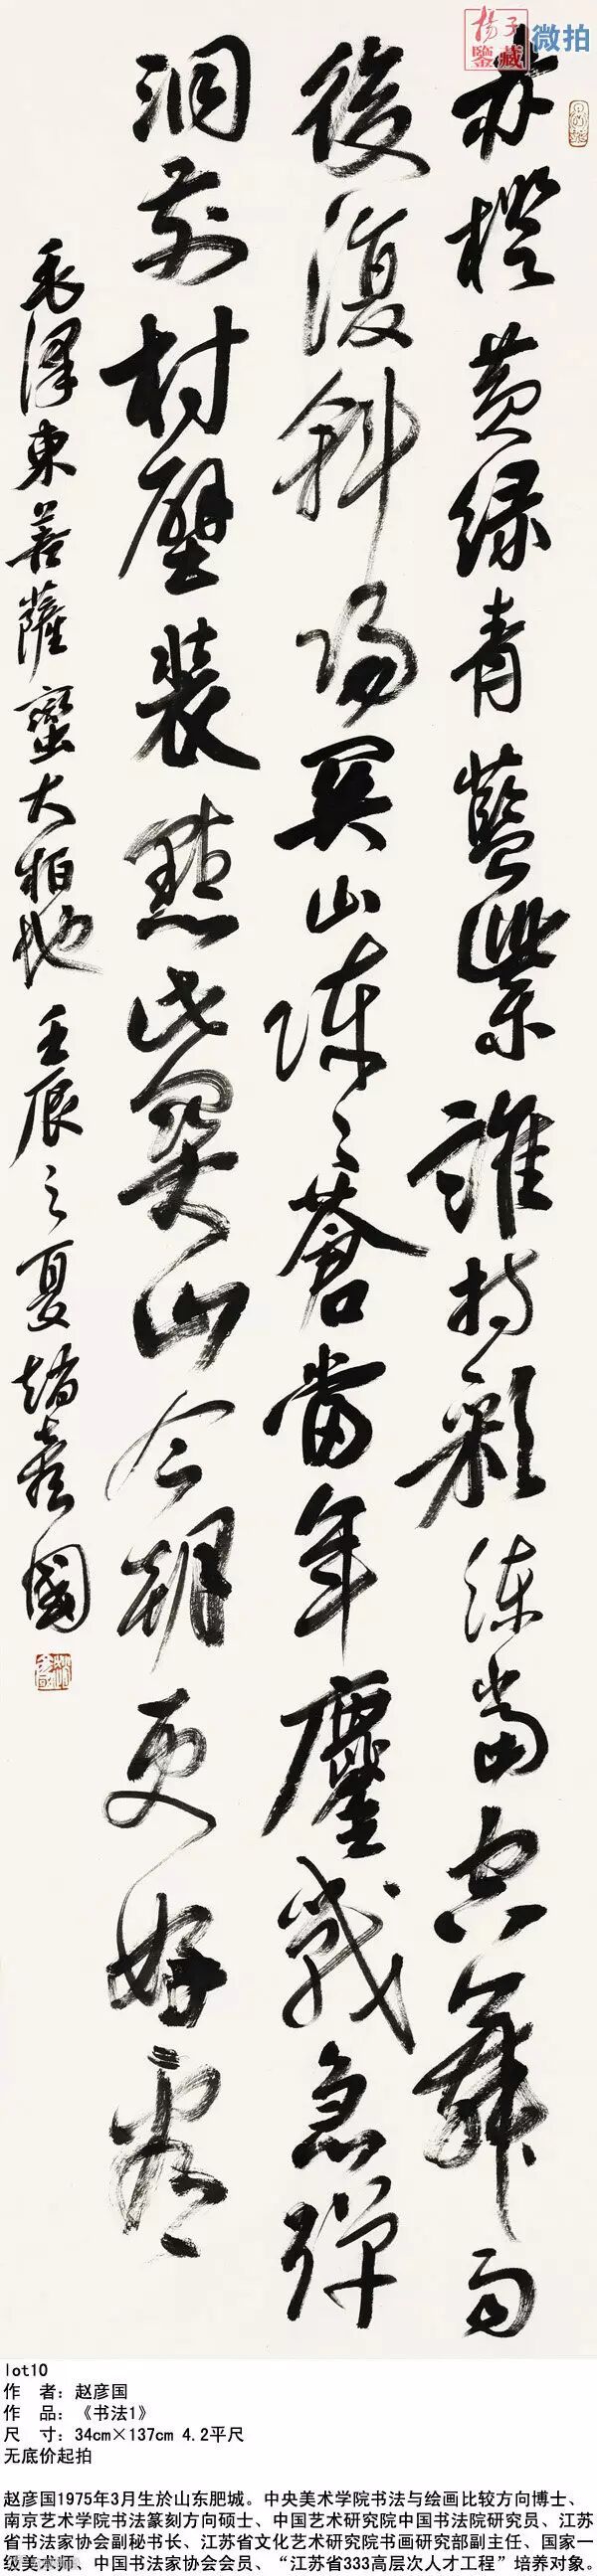 揚子
鑒藏
微拍
赤橙黄绿青藍紫誰持彩练當空舞雨
後復斜陽關山陣々蒼當年鏖戰急彈
洞前村壁裝點此關山今朝更好看
毛泽東菩薩蠻大柏地 壬辰之夏趙彦國
lot10
作 者：赵彦国
作 品：《书法1》
尺 寸：34cm×137cm 4.2平尺
无底价起拍
赵彦国1975年3月生於山东肥城。中央美术学院书法与绘画比较方向博士、
南京艺术学院书法篆刻方向硕士、中国艺术研究院中国书法院研究员、江苏
省书法家协会副秘书长、江苏省文化艺术研究院书画研究部副主任、国家一
级美术师、中国书法家协会会员、“江苏省333高层次人才工程”培养对象。